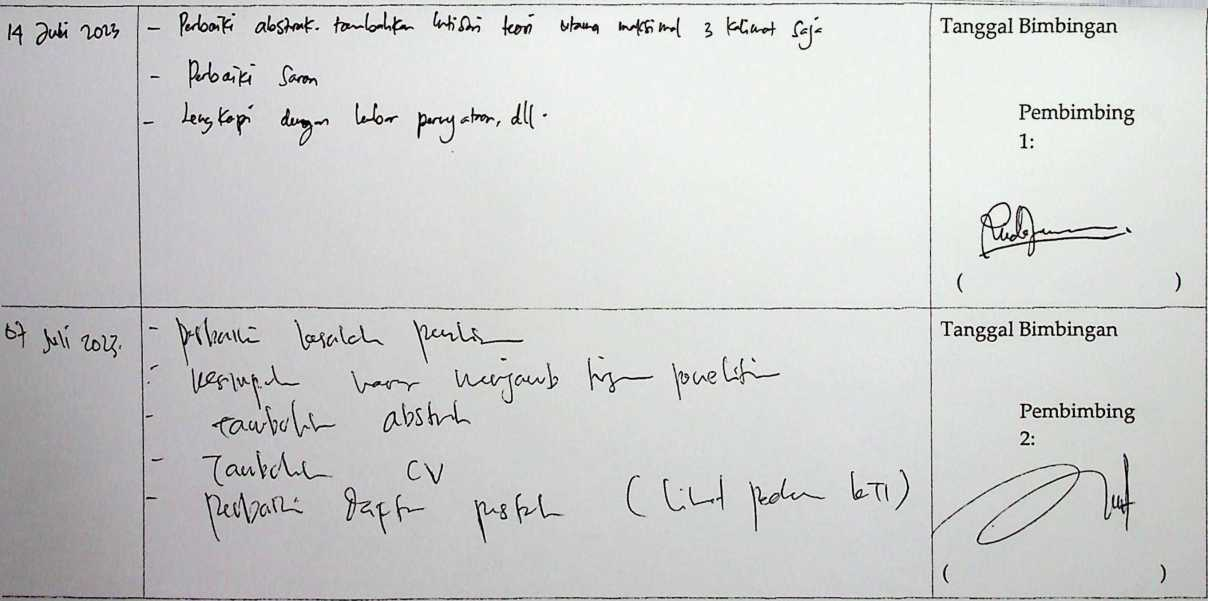 14 Juli 2023
- Perbaiki abstrak. tambahkan intisari teori utama maksimal 3 kalimat saja
- Perbaiki Saran
- Lengkapi dengan lembar pernyataan, dll.
Tanggal Bimbingan
Pembimbing
1:
( )
07 Juli 2023.
- perbaiki kesalahan penulisan
- kesimpulan harus menjawab tujuan penelitian
- tambahkan abstrak
- Tambahkan CV
- Perbaiki Daftar pustaka (lihat pedoman KTI)
Tanggal Bimbingan
Pembimbing
2:
( )